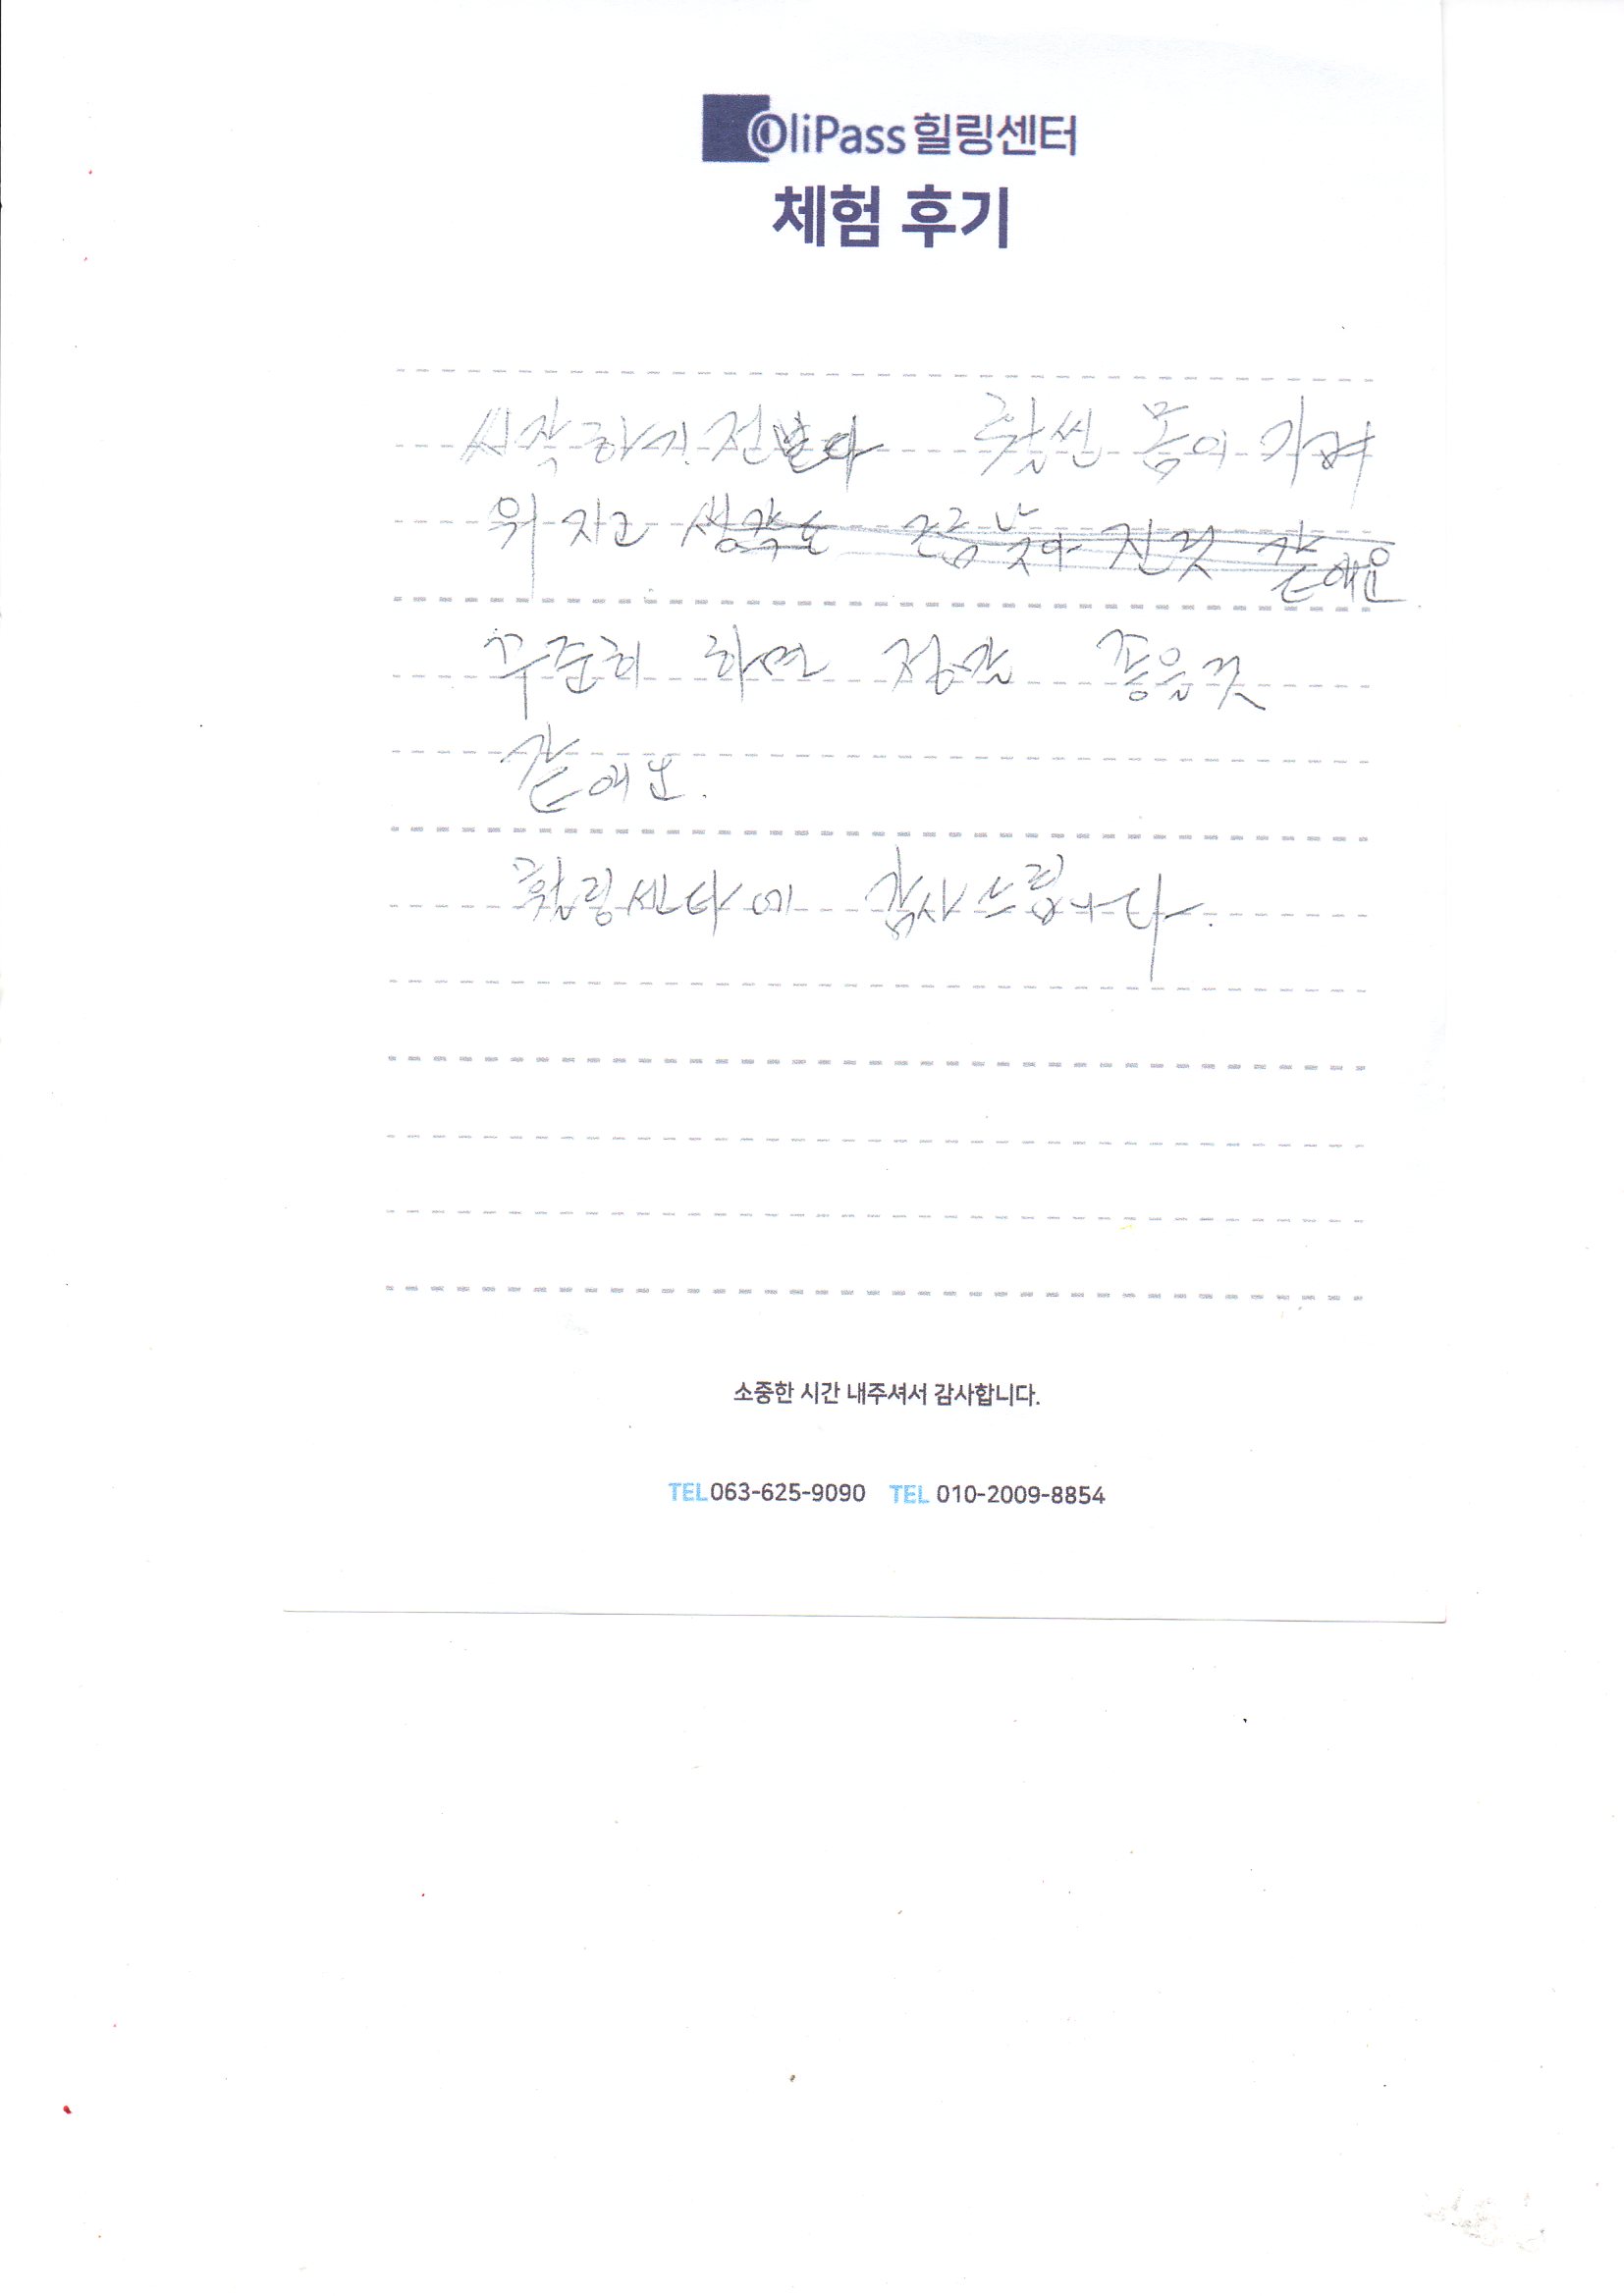 OliPass 힐링센터
체험 후기
씨작하기 전보다 훨씬 몸이 가벼
워 지고 쌩각도 조금 낮아 진것 같애요
꾸준히 하면 정말 좋을것
같애요.
휠링센타에 감사드립니다.
소중한 시간 내주셔서 감사합니다.
TEL 063-625-9090 TEL 010-2009-8854